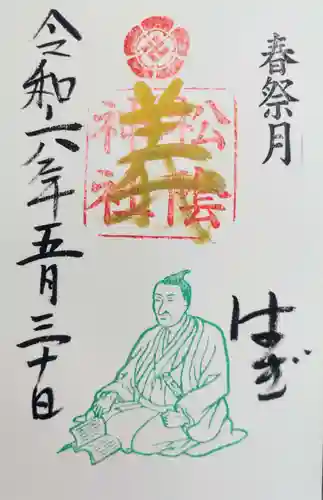 春祭月
松陰
神社
はぎ
令和六年五月三十日